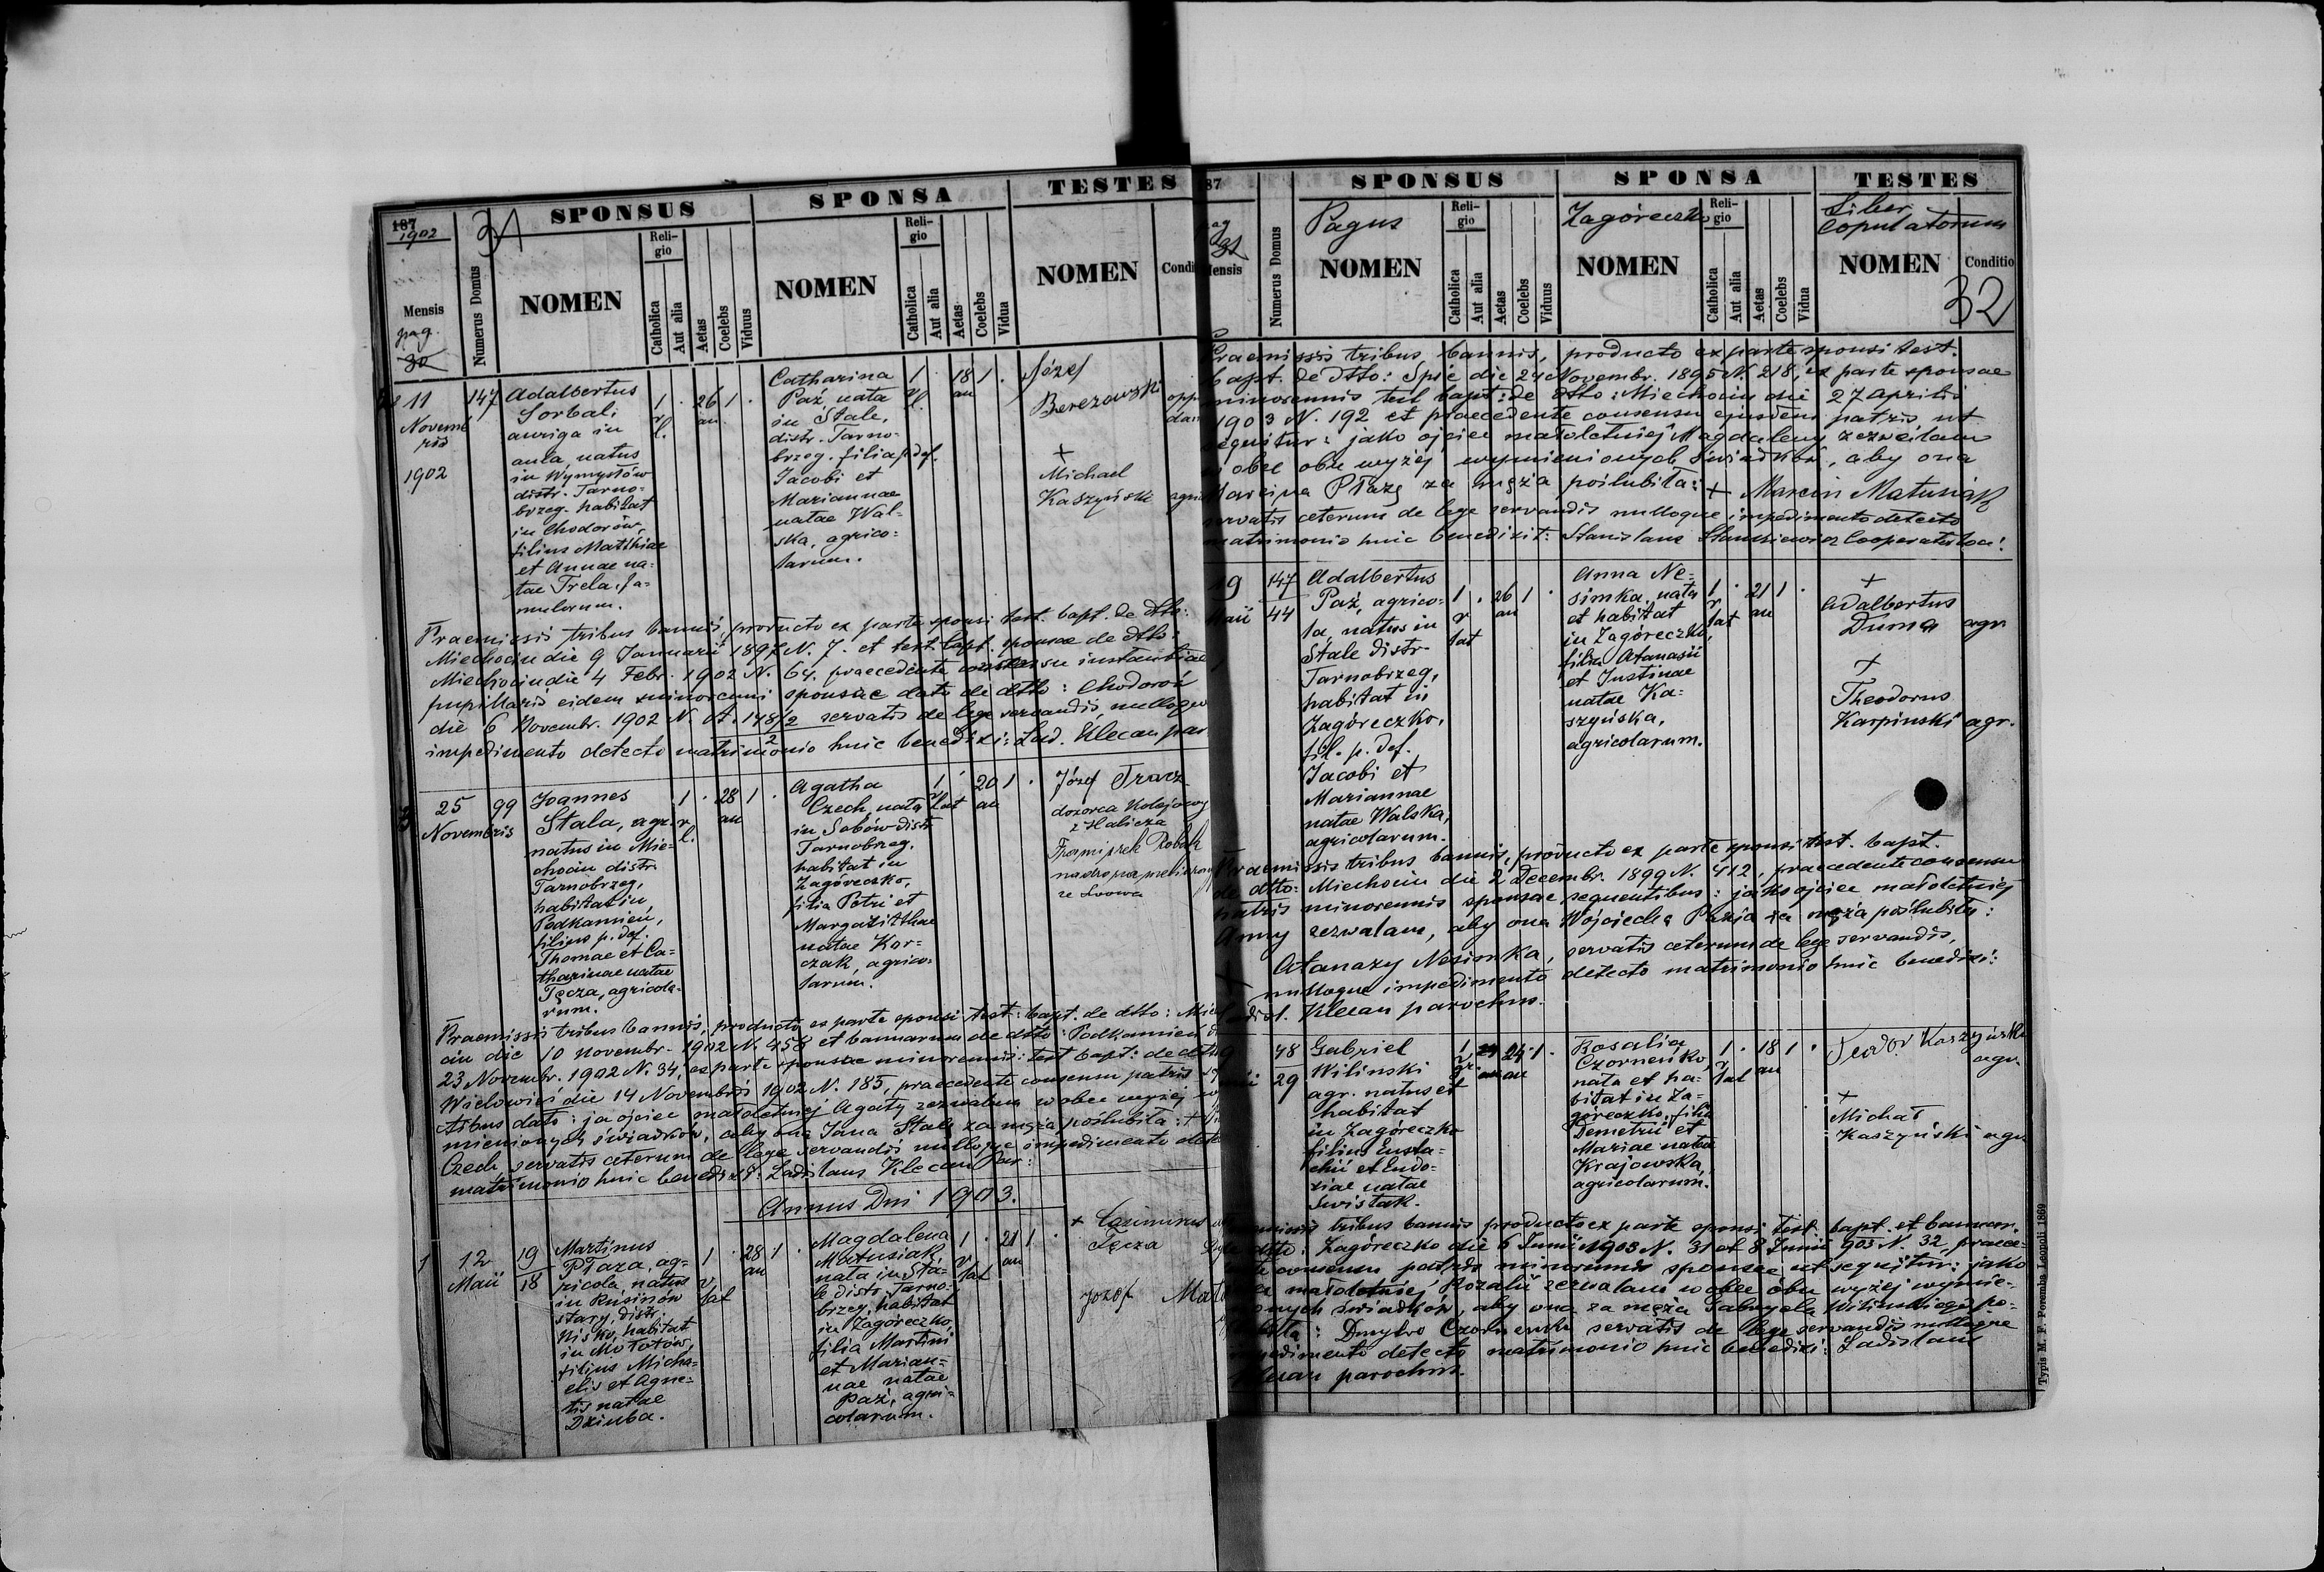 187
1902
31
SPONSUS
SPONSA
TESTES
Mensis
pag.
30
Numerus Domus
NOMEN
Religio
Catholica
Aut alia
Aetas
Coelebs
Viduus
NOMEN
Religio
Catholica
Aut alia
Aetas
Coelebs
Vidua
NOMEN
Condi
11
Novemb
ris
1902
147
Adalbertus
Sorbali
auriga in
aula natus
in Wymysłów
distr. Tarno-
brzeg. habitat
in Chodorów,
filius Matthiae
et Annae na-
tae Trela, fa-
mulorum.
1
r.
l.
26
an.
1
Catharina
Paź nata
in Stale,
distr. Tarno-
brzeg. filia p. def.
Jacobi et
Mariannae
natae Wal-
ska, agrico-
larum.
1
r.
l.
18
an
1
Józef
Berezowski
oppi
dan
+
Michael
Kaszyńsk
agri
Praemissis tribus bannis, producto ex parte sponsi test. bapt. de dtto:
Miechocin die 9 Januarii 1897 N. 7. et test. bapt. sponsae de dtto:
Miechocin die 4 Febr. 1902 N. 64. praecedente consensu instantiae
pupillaris eidem minorenni sponsae dato de dtto: Chodorów
die 6 Novembr. 1902 N. A. 148/2 servatis de lege servandis, nulloque
2
impedimento detecto matrimonio huic benedixi: Lad. Klecan par
25
Novembris
99
Joannes
Stala, agr.
natus in Mie-
chocin distr.
Tarnobrzeg,
habitat in
Podkamień,
filius p. def.
Thomae et Ca-
tharinae natae
Tęcza, agricola-
rum.
1
r.
l.
28
an
1
Agatha
Czech, nata
in Sobów distr.
Tarnobrzeg,
habitat in
Zagóreczko,
filia Petri et
Margarithae
natae Kor-
czak, agrico-
larum.
1
r
Lat
20
an
1
Józef Tracz
dozorca kolejowy
z Halicza
Robak
ze Lwowa
Praemissis tribus bannis, producto ex parte sponsi test: bapt. de dtto: Miech
cin die 10 novembr. 1902 N. 458 et bannorum de dtto: Podkamień d
23 Novembr. 1902 N. 34, ex parte sponsae minorennis: test bapt: de dtto
Wielowieś die 14 Novembris 1902 N. 185, praecedente consensu patris
tibus dato: ja ojciec małoletniej Agaty zezwalam wobec wyżej wy
mienionych świadków, aby ona Jana Stalę za męża poślubiła: +
Czech servatis ceterum de lege servandis nulloque impedimento dete
matrimonio huic benedixi: Ladislaus Klecan Par:
Annus Dni 1903.
1
12
Maii
19
18
Martinus
Płaza, ag-
ricola, natus
in Rusinów
stary, distr.
Nisko, habitat
in Mołotów,
filius Micha-
elis et Agne-
tis natae
Dziuba.
1
r.
lat
28
an
1
Magdalena
Matusiak,
nata in Sta-
le distr. Tarno-
brzeg, habitat
in Zagóreczko,
filia Martini
et Marian-
nae natae
Paź, agri-
colarum.
1
r
lat
21
an
1
+ Casimirus
Tęcza
Józef Mat
87
SPONSUS
SPONSA
TESTES
pag
31
Mensis
Numerus Domus
Pagus
NOMEN
Religio
Catholica
Aut alia
Aetas
Coelebs
Viduus
Zagóreczko
NOMEN
Religio
Catholica
Aut alia
Aetas
Coelebs
Vidua
Liber
Copulatorum
NOMEN
Conditio
32
Praemissis tribus bannis, producto ex parte sponsi test.
bapt. de dtto: Spie die 24 Novembr. 1895 N. 218, ex parte sponsae
minorennis test bapt: de dtto: Miechocin die 27 Aprilis
1903 N. 192 et praecedente consensu ejusdem patris ut
sequitur: jako ojciec małoletniej Magdaleny zezwalam
w obec obu wyżej wymienionych świadków, aby ona
Marcina Płazę za męża poślubiła: + Marcin Matusiak
servatis ceterum de lege servandis nulloque impedimento detecto
matrimonio huic benedixit: Stanislaus Stankiewicz Cooperator loci.
19
Maii
147
44
Adalbertus
Paź, agrico-
la, natus in
Stale distr.
Tarnobrzeg,
habitat in
Zagóreczko,
fil. p. def.
Jacobi et
Mariannae
natae Walska,
agricolarum.
1
r
lat
26
an
1
Anna Ne-
simka, nata
et habitat
in Zagóreczko,
filia Atanasii
et Justinae
natae Ka-
szyńska,
agricolarum.
1
r
lat
21
an
1
+
Adalbertus
Duma
agr
+
Theodorus
Karpinski
agr.
Praemissis tribus bannis, producto ex parte sponsi test. bapt.
de dtto: Miechocin die 2 Decembr. 1899 N. 412, praecedente consensu
patris minorennis sponsae sequentibus: jako ojciec małoletniej
Anny zezwalam, aby ona Wojciecha Pazia za męża poślubiła:
+ Atanazy Nesimka, servatis ceterum de lege servandis,
nulloque impedimento detecto matrimonio huic benedixi:
Ladisl. Klecan parochus.
48
29
Gabriel
Wilinski
agr. natus et
habitat
in Zagóreczko
filius Eusta-
chii et Eudo-
xiae natae
Swistak.
1
r.
gr
24
an
1
Rosalia
Czorneńka,
nata et ha-
bitat in Za-
góreczko, filia
Demetrii et
Mariae natae
Krajowska,
agricolarum.
1
r
lat
18
an
1
Teodor Kaszyński
agr.
+
Michał
Kaszyński agr
Praemissis tribus bannis producto ex parte sponsi test. bapt. et bannor.
de dtto: Zagóreczko die 6 Junii 1903 N. 31 et 8 Junii 903 N. 32, praece-
dente consensu patris minorennis sponsae ut sequitur: jako
ojciec małoletniej Rozalii zezwalam w obec obu wyżej wymie-
nionych świadków, aby ona za męża Gabryela Wilinskiego po-
ślubiła: Dmytro Czorneńki servatis de lege servandis nulloque
impedimento detecto matrimonio huic benedixi: Ladislaus
Klecan parochus.
Typis M. F. Poremba Leopoli 1869